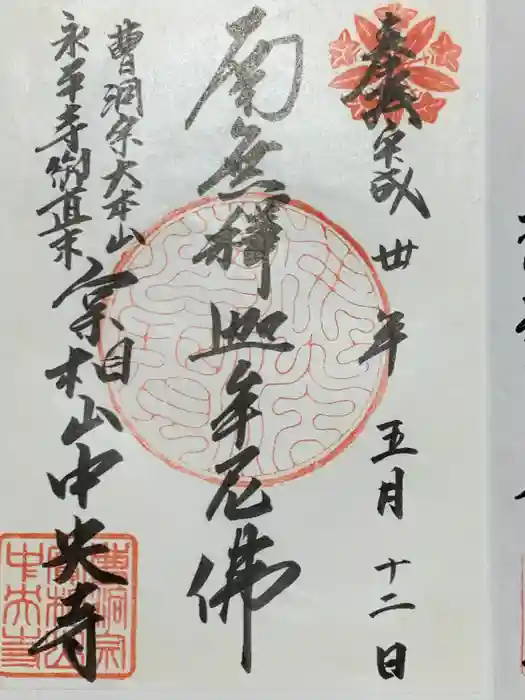 奉拝 平成卅年五月十二日
南無釋迦牟尼佛
曹洞宗大本山
永平寺御直末
宗相山中央寺
曹洞宗
宗相山
中央寺